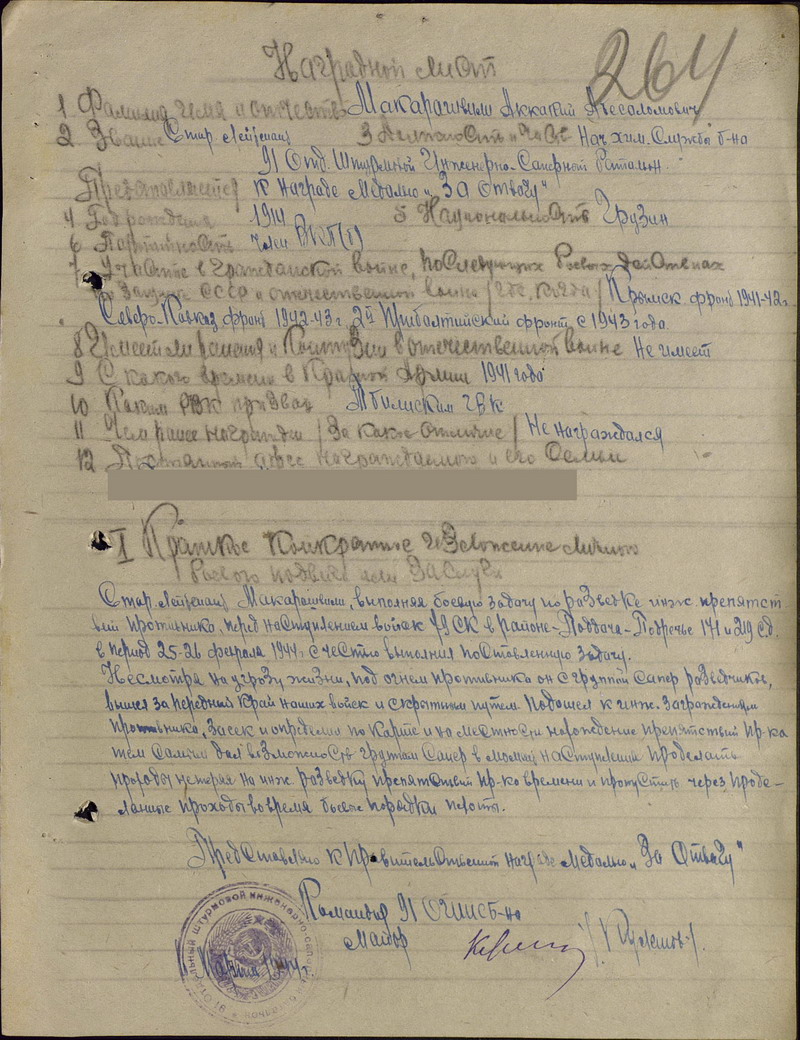 264
Наградной лист
1 Фамилия имя и отчество Макарашвили Аккакий Авесаломович
2 Звание Стар. Лейтенант 3 Должность и часть Нач. хим. Службы б-на
91 Отд. Штурмовой Инженерно-Саперный Баталион
Представляется к награде медалью "За Отвагу"
4 Год рождения 1914 5 Национальность Грузин
6 Партийность член ВКП(б)
7 Участие в Гражданской войне, последующих боевых действиях
по защите СССР и отечественной войне /где, когда/ Крымск фронт 1941-42г
Северо-Кавказ фронт 1942-43г. 2й Прибалтийский фронт с 1943 года.
8 Имеет ли ранения и контузии в отечественной войне Не имеет
9 С какого времени в Красной Армии 1941 года
10 Каким РВК призван Тбилиским ГВК
11 Чем ранее награжден /за какие отличие/ Не награждался
12 Постоянный адрес награждаемого и его Семьи
I Краткое конкретное изложение личного
боевого подвига или заслуги
Стар. Лейтенант Макарашвили, выполняя боевую задачу по разведке инж. препятст
вий противника, перед наступлением войск СК в районе Поддача-Подречье 171 и 219 с.д.
в период 25-26 февраля 1944г с честью выполнил поставленную задачу.
Несмотря на угрозу жизни, под огнем противника он с группой сапер разведчиков,
вышел за передний край наших войск и скрытным путем подошел к инж. заграждениям
противника, засек и определил по карте и на местности нарождение препятствий пр-ка
тем самым дал возможность группам сапер в момент наступления проделать
проходы не теряя на инж. разведку препятствий пр-ка времени и пропустить через проде-
ланные проходы во время боевые порядки пехоты.
Представляю к правительственной награде медалью "За Отвагу"
Командир 91 ОШИСБ-на
Майор
Марта 1944г.
91 отдельный штурмовой инженерно-саперный батальон